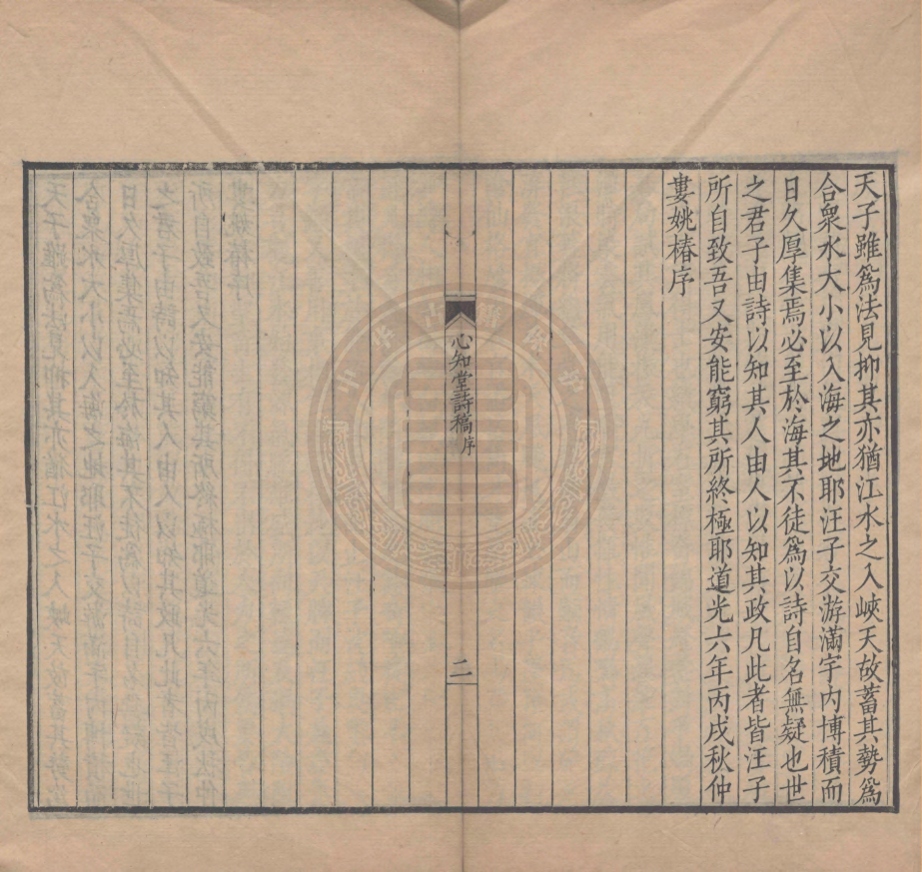 天子雖爲法見抑其亦猶江水之入峽天故蓄其勢爲
合衆水大小以入海之地耶汪子交游滿宇內博積而
日久厚集焉必至於海其不徒爲以詩自名無疑也世
之君子由詩以知其人由人以知其政凡此者皆汪子
所自致吾又安能窮其所終極耶道光六年丙戌秋仲
婁姚椿序
心知堂詩稿序
二